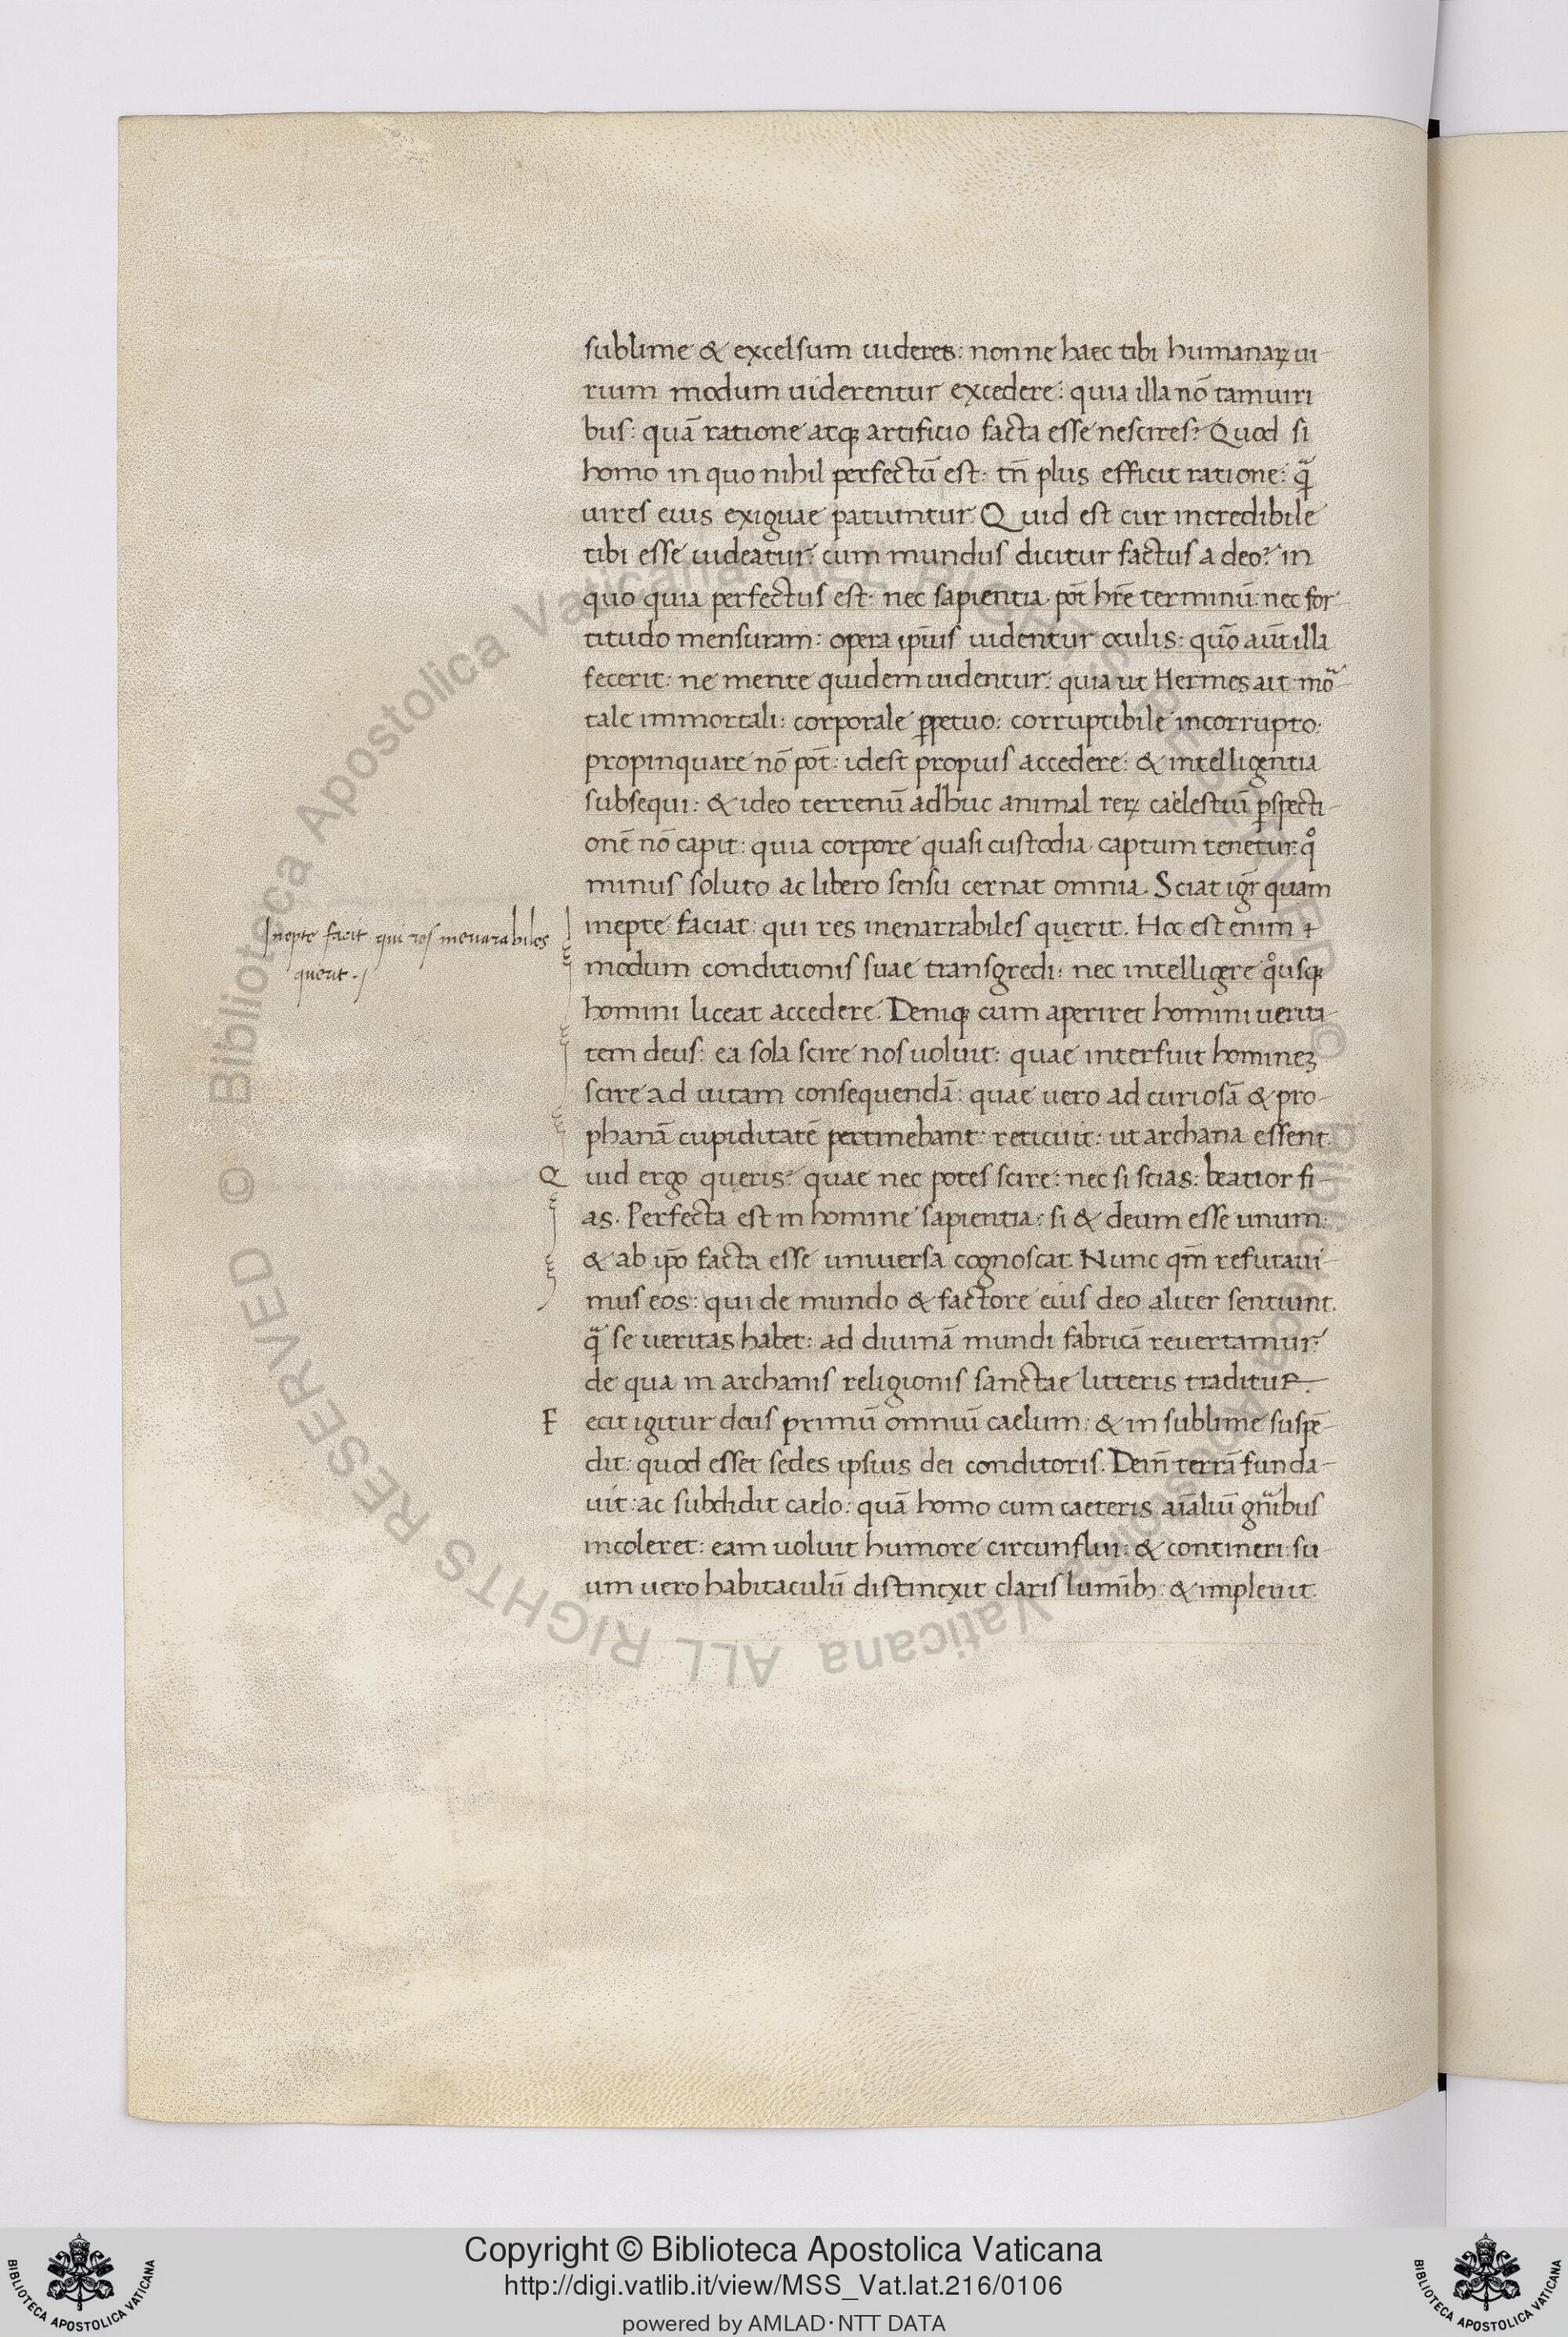 sublime & excelsum uideres: nonne haec tibi humanaꝝ ui-
rium modum uiderentur excedere: quia illa nō tamuiri
bus: quā ratione atqꝫ artificio facta esse nescires? Quod si
homo in quo nihil perfectū est: tn̄ plus efficit ratione: qᷓ
uires eius exiguae patiuntur. Quid est cur incredibile
tibi esse uideatur: cum mundus dicitur factus a deo? in
quo quia perfectus est: nec sapientia pōt hr̄e terminū: nec for
titudo mensuram: opera ip̄ius uidentur oculis: quō aūt illa
fecerit: ne mente quidem uidentur: quia ut Hermes ait: moᷓ-
tale immortali: corporale ꝑpetuo: corruptibile incorrupto:
propinquare nō pōt: idest propius accedere: & intelligentia
subsequi: & ideo terrenū adhuc animal reꝝ caelestiū ꝑspecti-
onē nō capit: quia corpore quasi custodia captum tenetur: qͦ
minus soluto ac libero sensu cernat omnia. Sciat igr̄ quam
inepte faciat: qui res inenarrabiles quęrit. Hoc est enim
Inepte facit qui res inenarabiles
querit ./
modum conditionis suae transgredi: nec intelligere qͦusqꝫ
homini liceat accedere. Deniqꝫ cum aperiret homini uerita-
tem deus: ea sola scire nos uoluit: quae interfuit homineꝫ
scire ad uitam consequendā: quae uero ad curiosā & pro-
phanā cupiditatē pertinebant: reticuit: ut archana essent.
Quid ergo quęris? quae nec potes scire: nec si scias: beatior fi-
as. Perfecta est in homine sapientia: si & deum esse unum:
& ab ip̄o facta esse uniuersa cognoscat. Nunc qm̄ refutaui-
mus eos: qui de mundo & factore eius deo aliter sentiunt.
qᷓ se ueritas habet: ad diuinā mundi fabricā reuertamur:
de qua in archanis religionis sanctae litteris traditur.
Fecit igitur deus primū omniū caelum: & in sublime suspē-
dit: quod esset sedes ipsius dei conditoris. Dein̄ terrā funda-
uit: ac subdidit caelo: quā homo cum caeteris aīaliū gn̄ibus
incoleret: eam uoluit humore circunflui: & contineri: su
um uero habitaculū distincxit claris lumībꝫ: & impleuit.
Copyright © Biblioteca Apostolica Vaticana
http://digi.vatlib.it/view/MSS_Vat.lat.216/0106
powered by AMLAD·NTT DATA
BIBLIOTECA APOSTOLICA VATICANA
BIBLIOTECA APOSTOLICA VATICANA